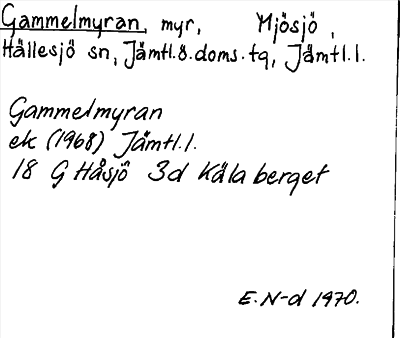 Gammelmyran, myr, Mjösjö,
Hällesjö sn, Jämtl.ö.doms.tg, Jämtl.l.
Gammelmyran
ek (1968) Jämtl.l.
18 G Håsjö 3d Käla berget
E.N-d 1970.